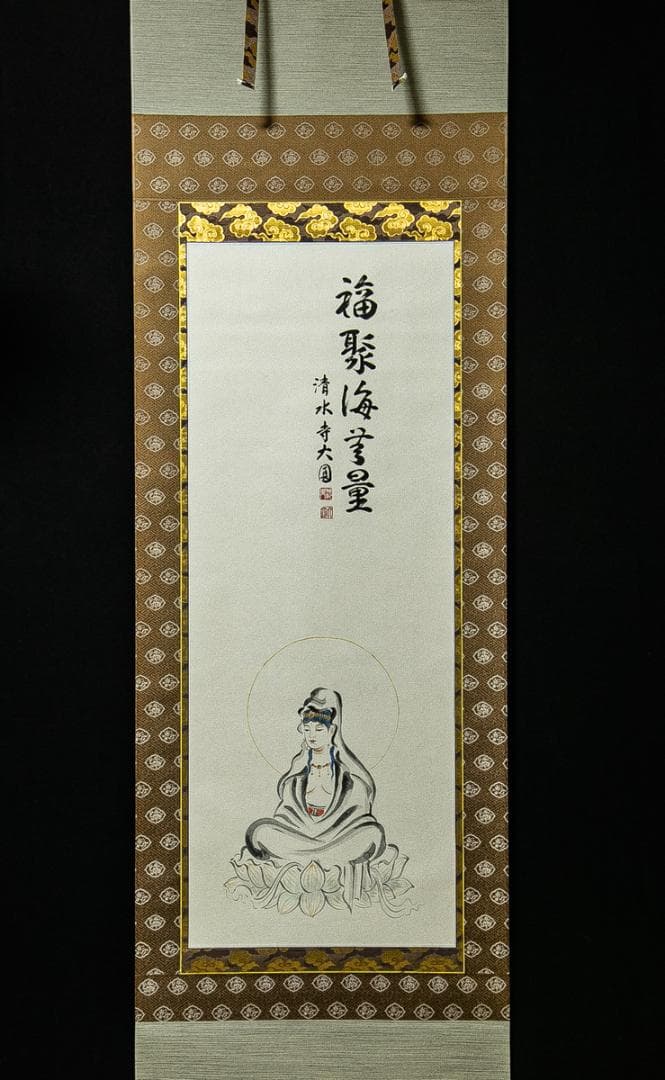 福聚海無量
清水寺大圓